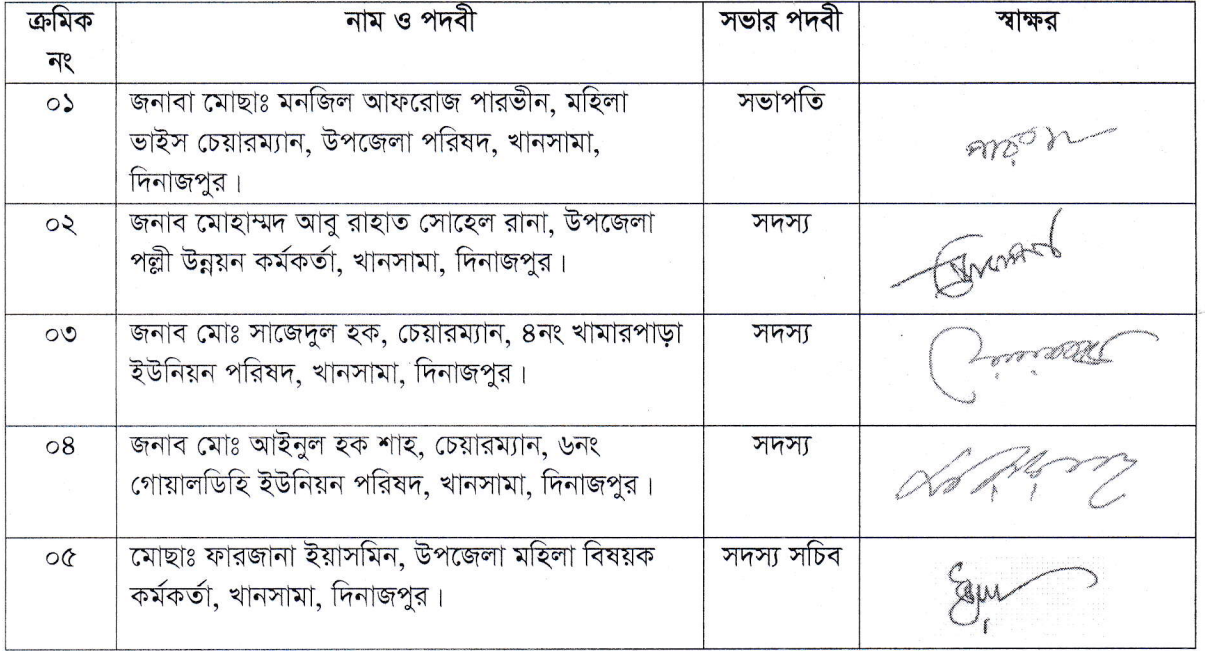 ক্রমিক নং	নাম ও পদবী	সভার পদবী	স্বাক্ষর
০১	জনাবা মোছাঃ মনজিল আফরোজ পারভীন, মহিলা	সভাপতি
ভাইস চেয়ারম্যান, উপজেলা পরিষদ, খানসামা,
দিনাজপুর।
০২	জনাব মোহাম্মদ আবু রাহাত সোহেল রানা, উপজেলা	সদস্য
পল্লী উন্নয়ন কর্মকর্তা, খানসামা, দিনাজপুর।
০৩	জনাব মোঃ সাজেদুল হক, চেয়ারম্যান, ৪নং খামারপাড়া	সদস্য
ইউনিয়ন পরিষদ, খানসামা, দিনাজপুর।
০৪	জনাব মোঃ আইনুল হক শাহ, চেয়ারম্যান, ৬নং	সদস্য
গোয়ালডিহি ইউনিয়ন পরিষদ, খানসামা, দিনাজপুর।
০৫	মোছাঃ ফারজানা ইয়াসমিন, উপজেলা মহিলা বিষয়ক	সদস্য সচিব
কর্মকর্তা, খানসামা, দিনাজপুর।